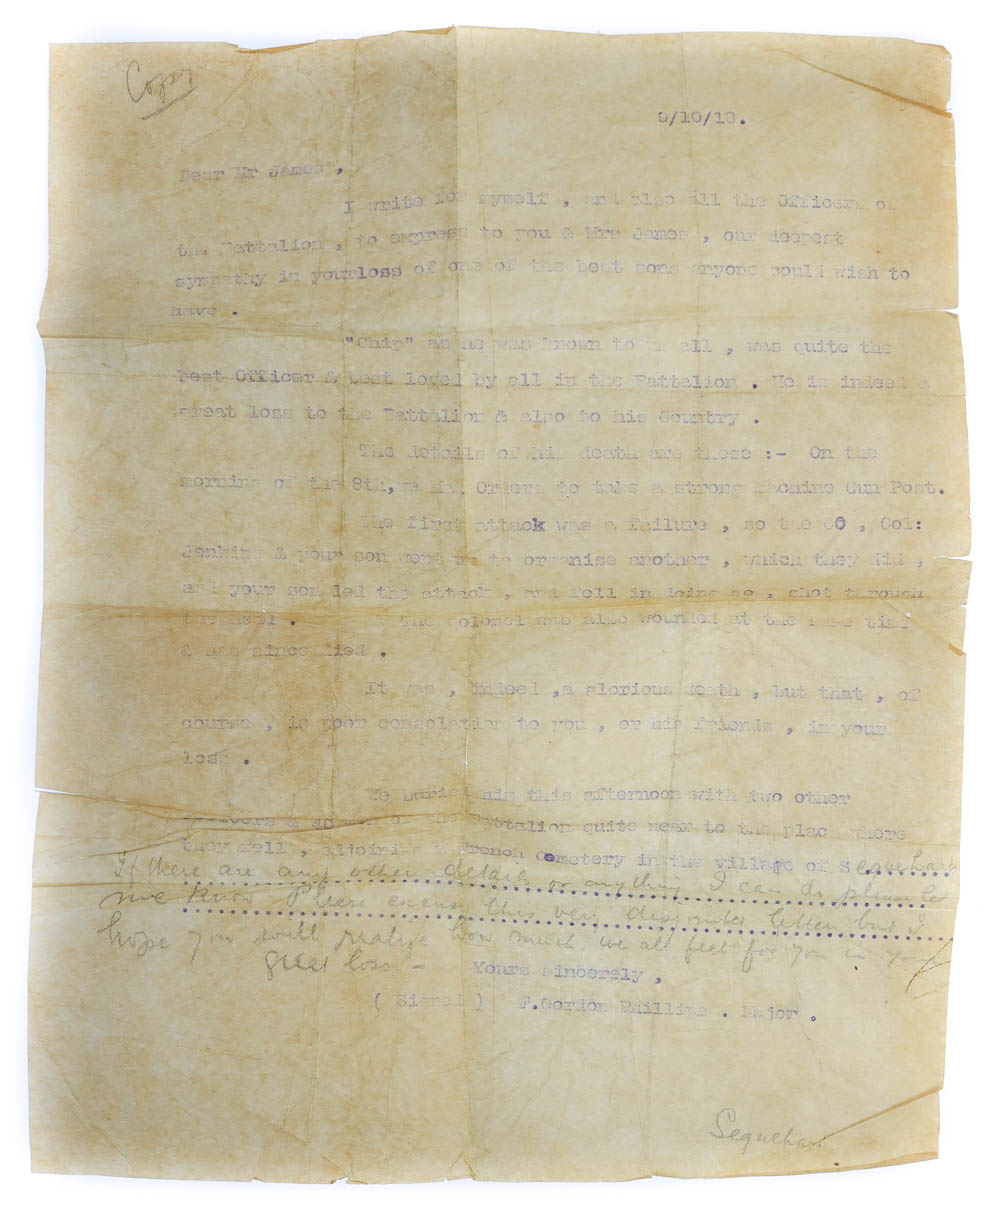 Copy
9/10/18.
Dear Mr James,
I write for myself , and also all the Officers of
the Battalion , to express to you & Mrs James , our deepest
sympathy in yourloss of one of the best sons anyone could wish to
have .
"Chip" as he was known to us all , was quite the
best Officer & best loved by all in the Battalion . He is indeed a
great loss to the Battalion & also to his Country .
The details of his death are these :- On the
morning of the 8th,we had Orders to take a strong Machine Gun Post.
The first attack was a failure , so the CO , Col:
Jenkins & your son went up to organise another , which they did ,
and your son led the attack , and fell in doing so , shot through
the head . The Colonel was also wounded at the same time
& has since died .
It was , indeed ,a glorious death , but that , of
course , is poor consolation to you , or his friends , in your
loss .
We buried him this afternoon with two other
Officers & of the Battalion quite near to the place where
they fell , adjoining a French Cemetery in the village of Sequehart
If there are any other details or anything I can do please let
me know Please excuse this very letter but I
hope you will realize how much we all feel for you in your
great loss -
Yours sincerely ,
( Signed ) F.Gordon Phillips . Major .
Sequehart